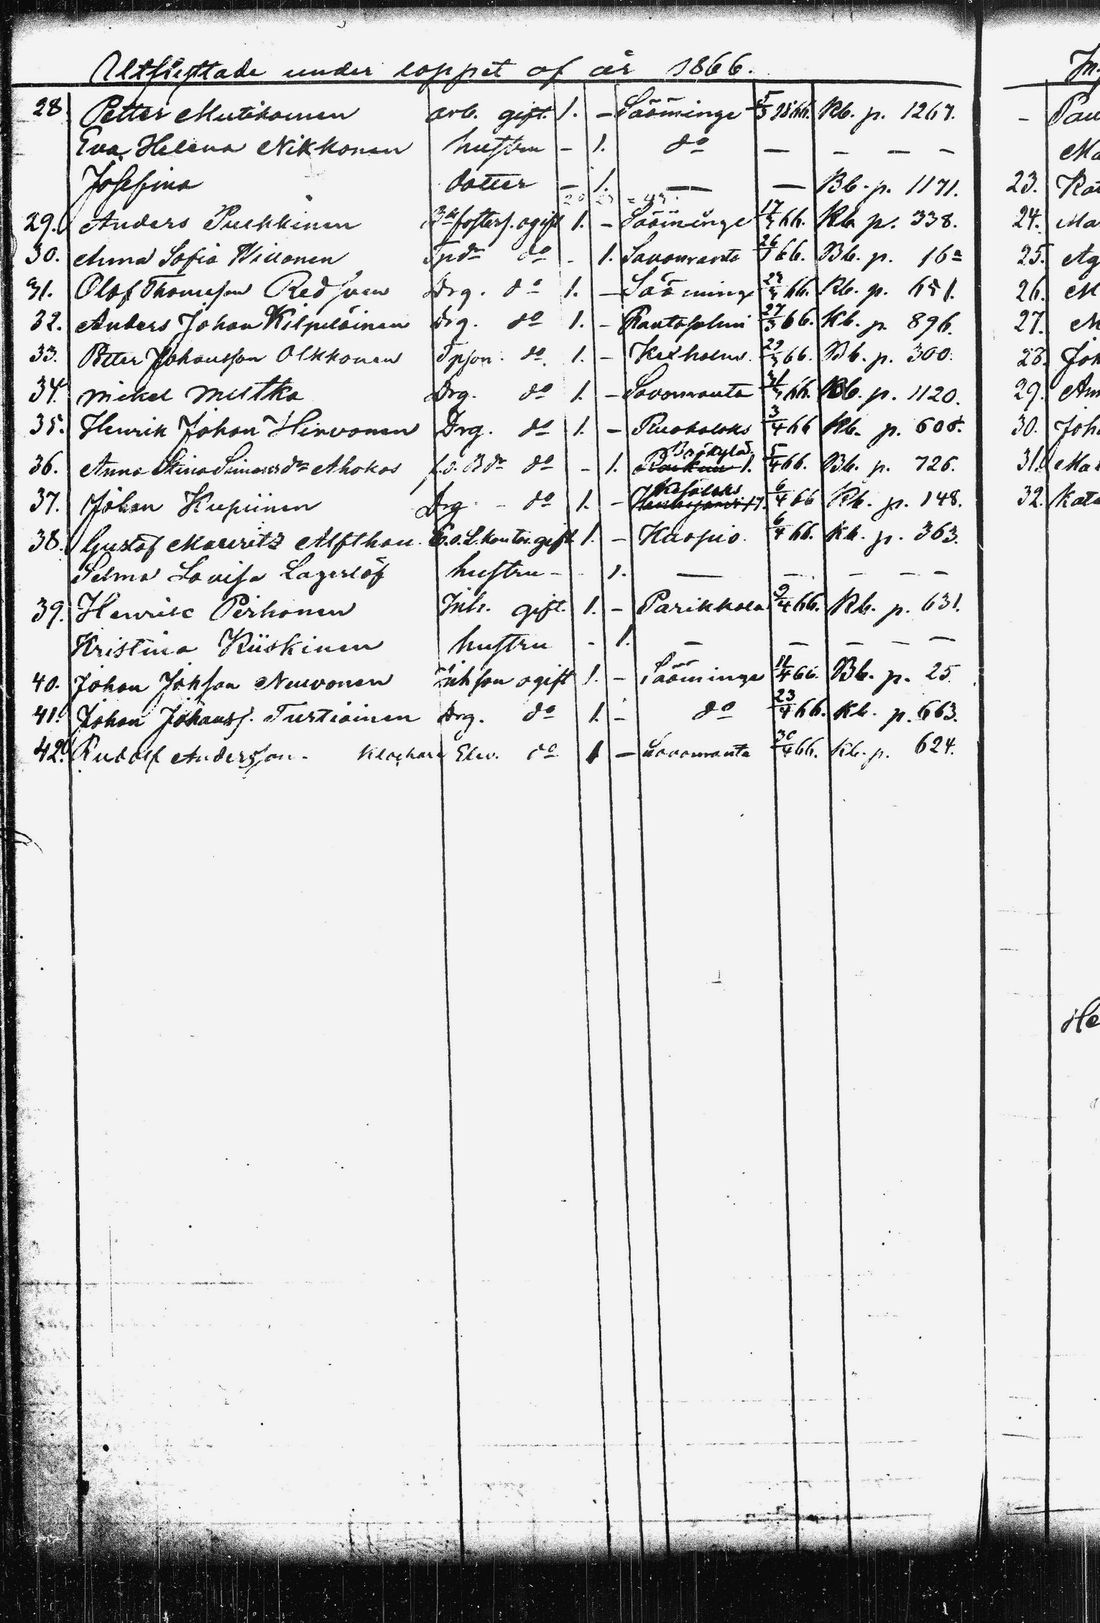 Utflyttade under loppet af år 1866.
28. Petter Mutikainen arb. gift. 1. – Sääminge Kb. p. 1267.
Eva Helena Nikkonen hustru – 1. do – – – –
Josefina dotter – 1. — — Bb. p. 1171.
29. Anders Pukkinen fosters. ogift 1. – Sääminge 17/3 66. Kb. p. 338.
30. Anna Sofia do – 1. Savonranta 66. Bb. p. 16
31. Olof Thomasson Redsven Drg. do 1. – Sääminge 66. Kb. p. 651.
32. Anders Johan Kilpeläinen Drg. do 1. – Rantasalmi 27/3 66. Kb. p. 896.
33. Petter Johansson Olkkonen do 1. – Kexholm 29/3 66. Bb. p. 300.
34. Mikel Drg. do 1. – Savonranta 66. Bb. p. 1120.
35. Henrik Johan Hirvonen Drg. do 1. – Ruokolaks 3/4 66 Kb. p. 605.
36. Anna Stina Simonsdr Ahokas do – 1. Bräkylä 5/4 66. Bb. p. 726.
37. Johan Kupiinen Drg – do 1. – Kesälaks 6/4 66 Kb. p. 148.
38. Gustaf Mauritz Alfthan gift 1. – Kuopio. 6/4 66. Kb. p. 363.
Selma Lovisa Lagerlöf hustru – 1. — – – – –
39. Henric Pirhonen Inh. gift. 1. – Parikkala 9/4 66. Kb. p. 631.
Kristina Kiiskinen hustru – 1. – – – – –
40. Johan Johsson Neuvonen Inh son ogift 1. – Sääminge 11/4 66. Bb. p. 25.
41. Johan Johanss. Turtiainen Drg. do 1. – do 23/4 66. Kb. p. 663.
42. Rudolf Andersson. Klockare Elev. do 1 – Savonranta 30/4 66. Kb. p. 624.
23.
24.
25.
26.
27.
28.
29.
30.
31.
32.